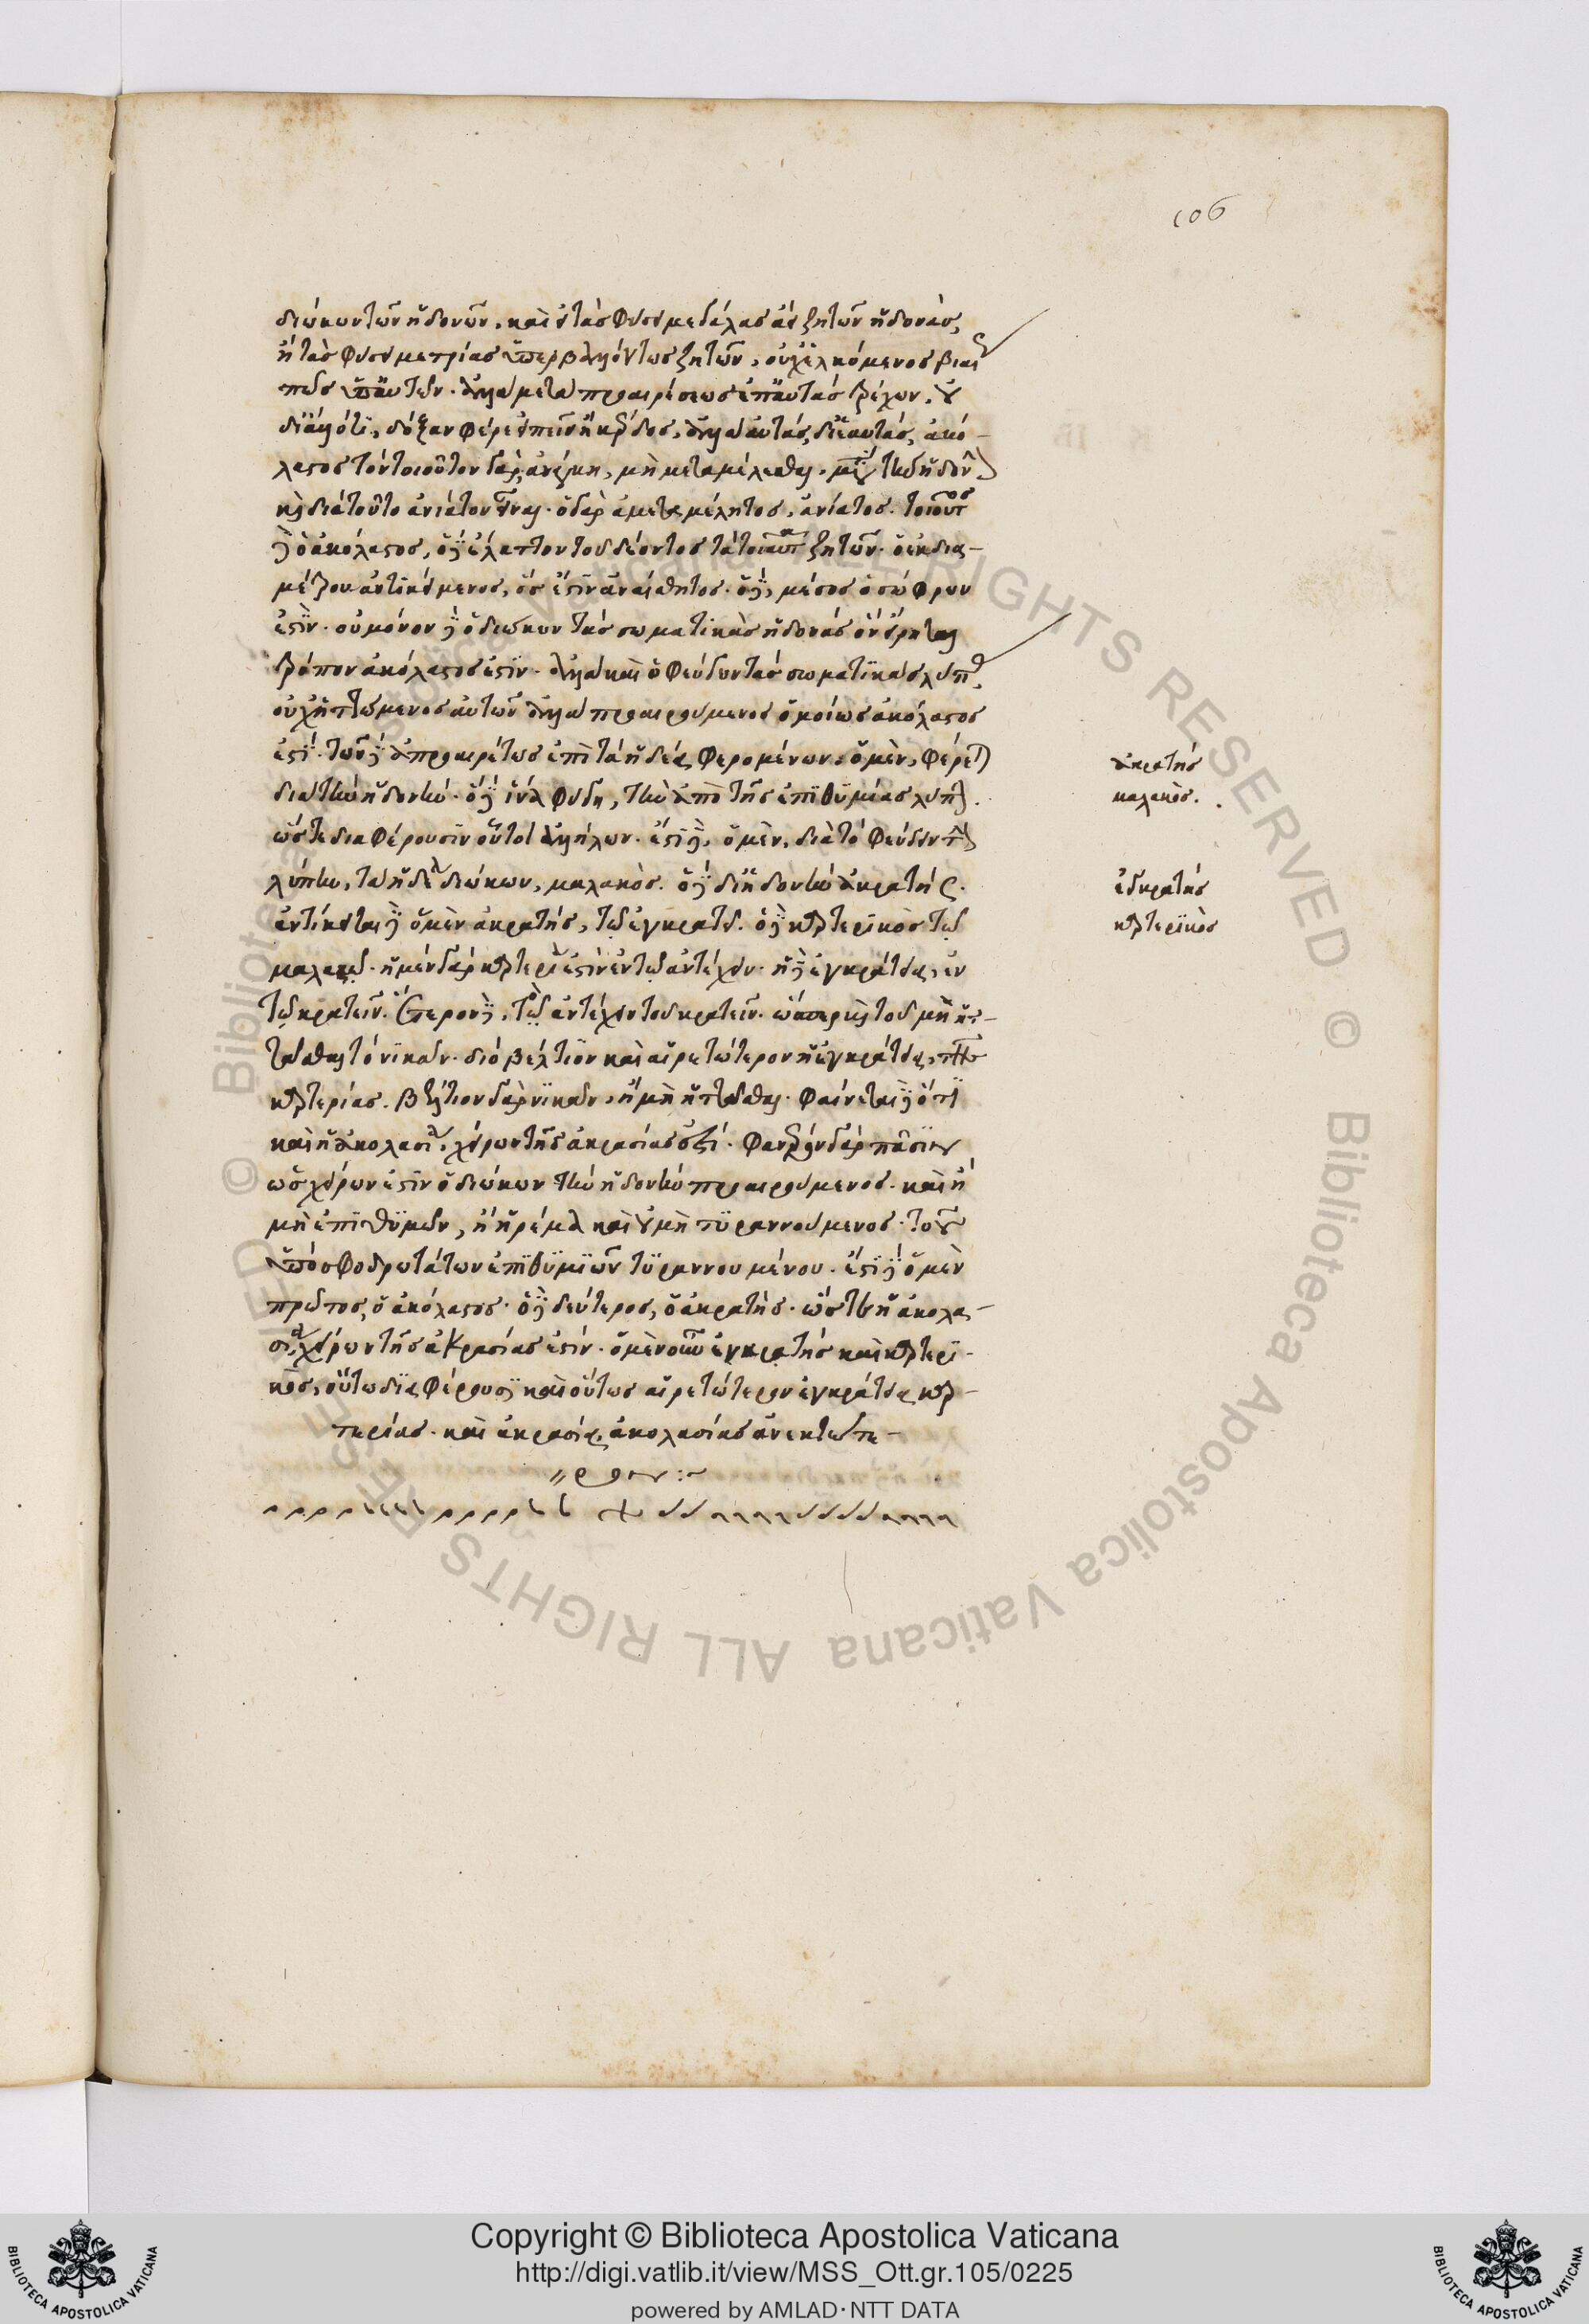 106
διώκων τῶν ἡδονῶν. καὶ ἢ τὰς φύσει μεγάλας ἀεὶ ζητῶν ἡδονὰς,
ἢ τὰς φύσει μετρίας ὑπερβαλλόντως ζητῶν, οὐχ ἑλκόμενος βιαί
πως ὑπ' αὐτῶν. ἀλλὰ μετὰ προαιρέσεως ἐπ' αὐτὰς τρέχων. οὐ
δι' ἄλλό τι, δόξαν φέρε εἰπεῖν ἢ κέρδος, ἀλλ' αὐτὰς δι' ἑαυτὰς, ἀκό-
λαστος τὸν τοιοῦτον γὰρ ἀνάγκη, μὴ μεταμέλεσθαι. μετὰ τὴν ἡδονὴν
καὶ διὰ τοῦτο ἀνίατον εἶναι. ὁ γὰρ ἀμεταμέλητος, ἀνίατος. τοιοῦτος
δὲ ὁ ἀκόλαστος, ὁ δὲ ἔλαττον τοῦ δέοντος τὰ τοιαῦτα ζητῶν. ὁ ἐκ δια-
μέτρου ἀντικείμενος, ὅς ἐστιν ἀναίσθητος. ὁ δὲ, μέσος ὁ σώφρων
ἐστὶν. οὐ μόνον δὲ ὁ διώκων τὰς σωματικὰς ἡδονὰς ὃν εἴρηται
τρόπον ἀκόλαστος ἐστὶν. ἀλλὰ καὶ ὁ φεύγων τὰς σωματικὰς λύπας,
οὐχ ἡττώμενος αὐτῶν ἀλλὰ προαιρούμενος ὁμοίως ἀκόλαστος
ἐστὶ. τῶν δὲ ἀπροαιρέτως ἐπὶ τὰ ἡδέα φερομένων, ὁ μὲν, φέρεται
διὰ τὴν ἡδονὴν. ὁ δὲ ἵνα φύγῃ, τὴν ἀπὸ τῆς ἐπιθυμίας λύπην.
ὥστε διαφέρουσιν οὗτοι ἀλλήλων. ἔστι δὲ, ὁ μὲν, διὰ τὸ φεύγειν τὴν
λύπην, τὰ ἡδέα διώκων, μαλακὸς. ὁ δὲ δι' ἡδονὴν ἀκρατής.
ἀντίκειται δὲ ὁ μὲν ἀκρατής, τῷ ἐγκρατεῖ. ὁ δὲ καρτερικὸς τῷ
μαλακῷ. ἡ μὲν γὰρ καρτερία ἐστὶν ἐν τῷ ἀντέχειν. ἡ δὲ ἐγκράτεια, ἐν
τῷ κρατεῖν. ἕτερον δὲ, τὸ ἀντέχειν τοῦ κρατεῖν. ὥσπερ καὶ τοῦ μὴ ἡτ-
τᾶσθαι τὸ νικᾶν. διὸ βέλτιον καὶ αἱρετώτερον ἡ ἐγκράτεια, τῆς
καρτερίας. βέλτιον γὰρ νικᾶν, ἢ μὴ ἡττᾶσθαι. φαίνεται δὲ ὅτι
καὶ ἡ ἀκολασία, χείρων τῆς ἀκρασίας ἐστί. φανερὸν γὰρ πᾶσιν
ὡς χείρων ἐστὶν ὁ διώκων τὴν ἡδονὴν προαιρούμενος. καὶ ἢ
μὴ ἐπιθυμῶν, ἢ ἠρέμα καὶ οὐ μὴ τυραννούμενος. τοῦ
ὑπὸ σφοδροτάτων ἐπιθυμιῶν τυραννουμένου. ἔστι δὲ ὁ μὲν
πρῶτος, ὁ ἀκόλαστος. ὁ δὲ δεύτερος, ὁ ἀκρατὴς. ὥστε ἡ ἀκολα-
σία, χείρων τῆς ἀκρασίας ἐστίν. ὁ μὲν οὖν ἐγκρατὴς καὶ καρτερι-
κὸς, οὕτω διαφέρουσι καὶ οὕτως αἱρετώτερον ἐγκράτεια καρ-
τερίας. καὶ ἀκρασία, ἀκολασίας ἀνεκτότε-
ρον :~
ἀκρατής
μαλακὸς.
ἐγκρατὴς
καρτερικὸς
Copyright © Biblioteca Apostolica Vaticana
http://digi.vatlib.it/view/MSS_Ott.gr.105/0225
powered by AMLAD·NTT DATA
BIBLIOTECA APOSTOLICA VATICANA
BIBLIOTECA APOSTOLICA VATICANA
© Biblioteca Apostolica Vaticana ALL RIGHTS RESERVED © Biblioteca Apostolica Vaticana ALL RIGHTS RESERVED